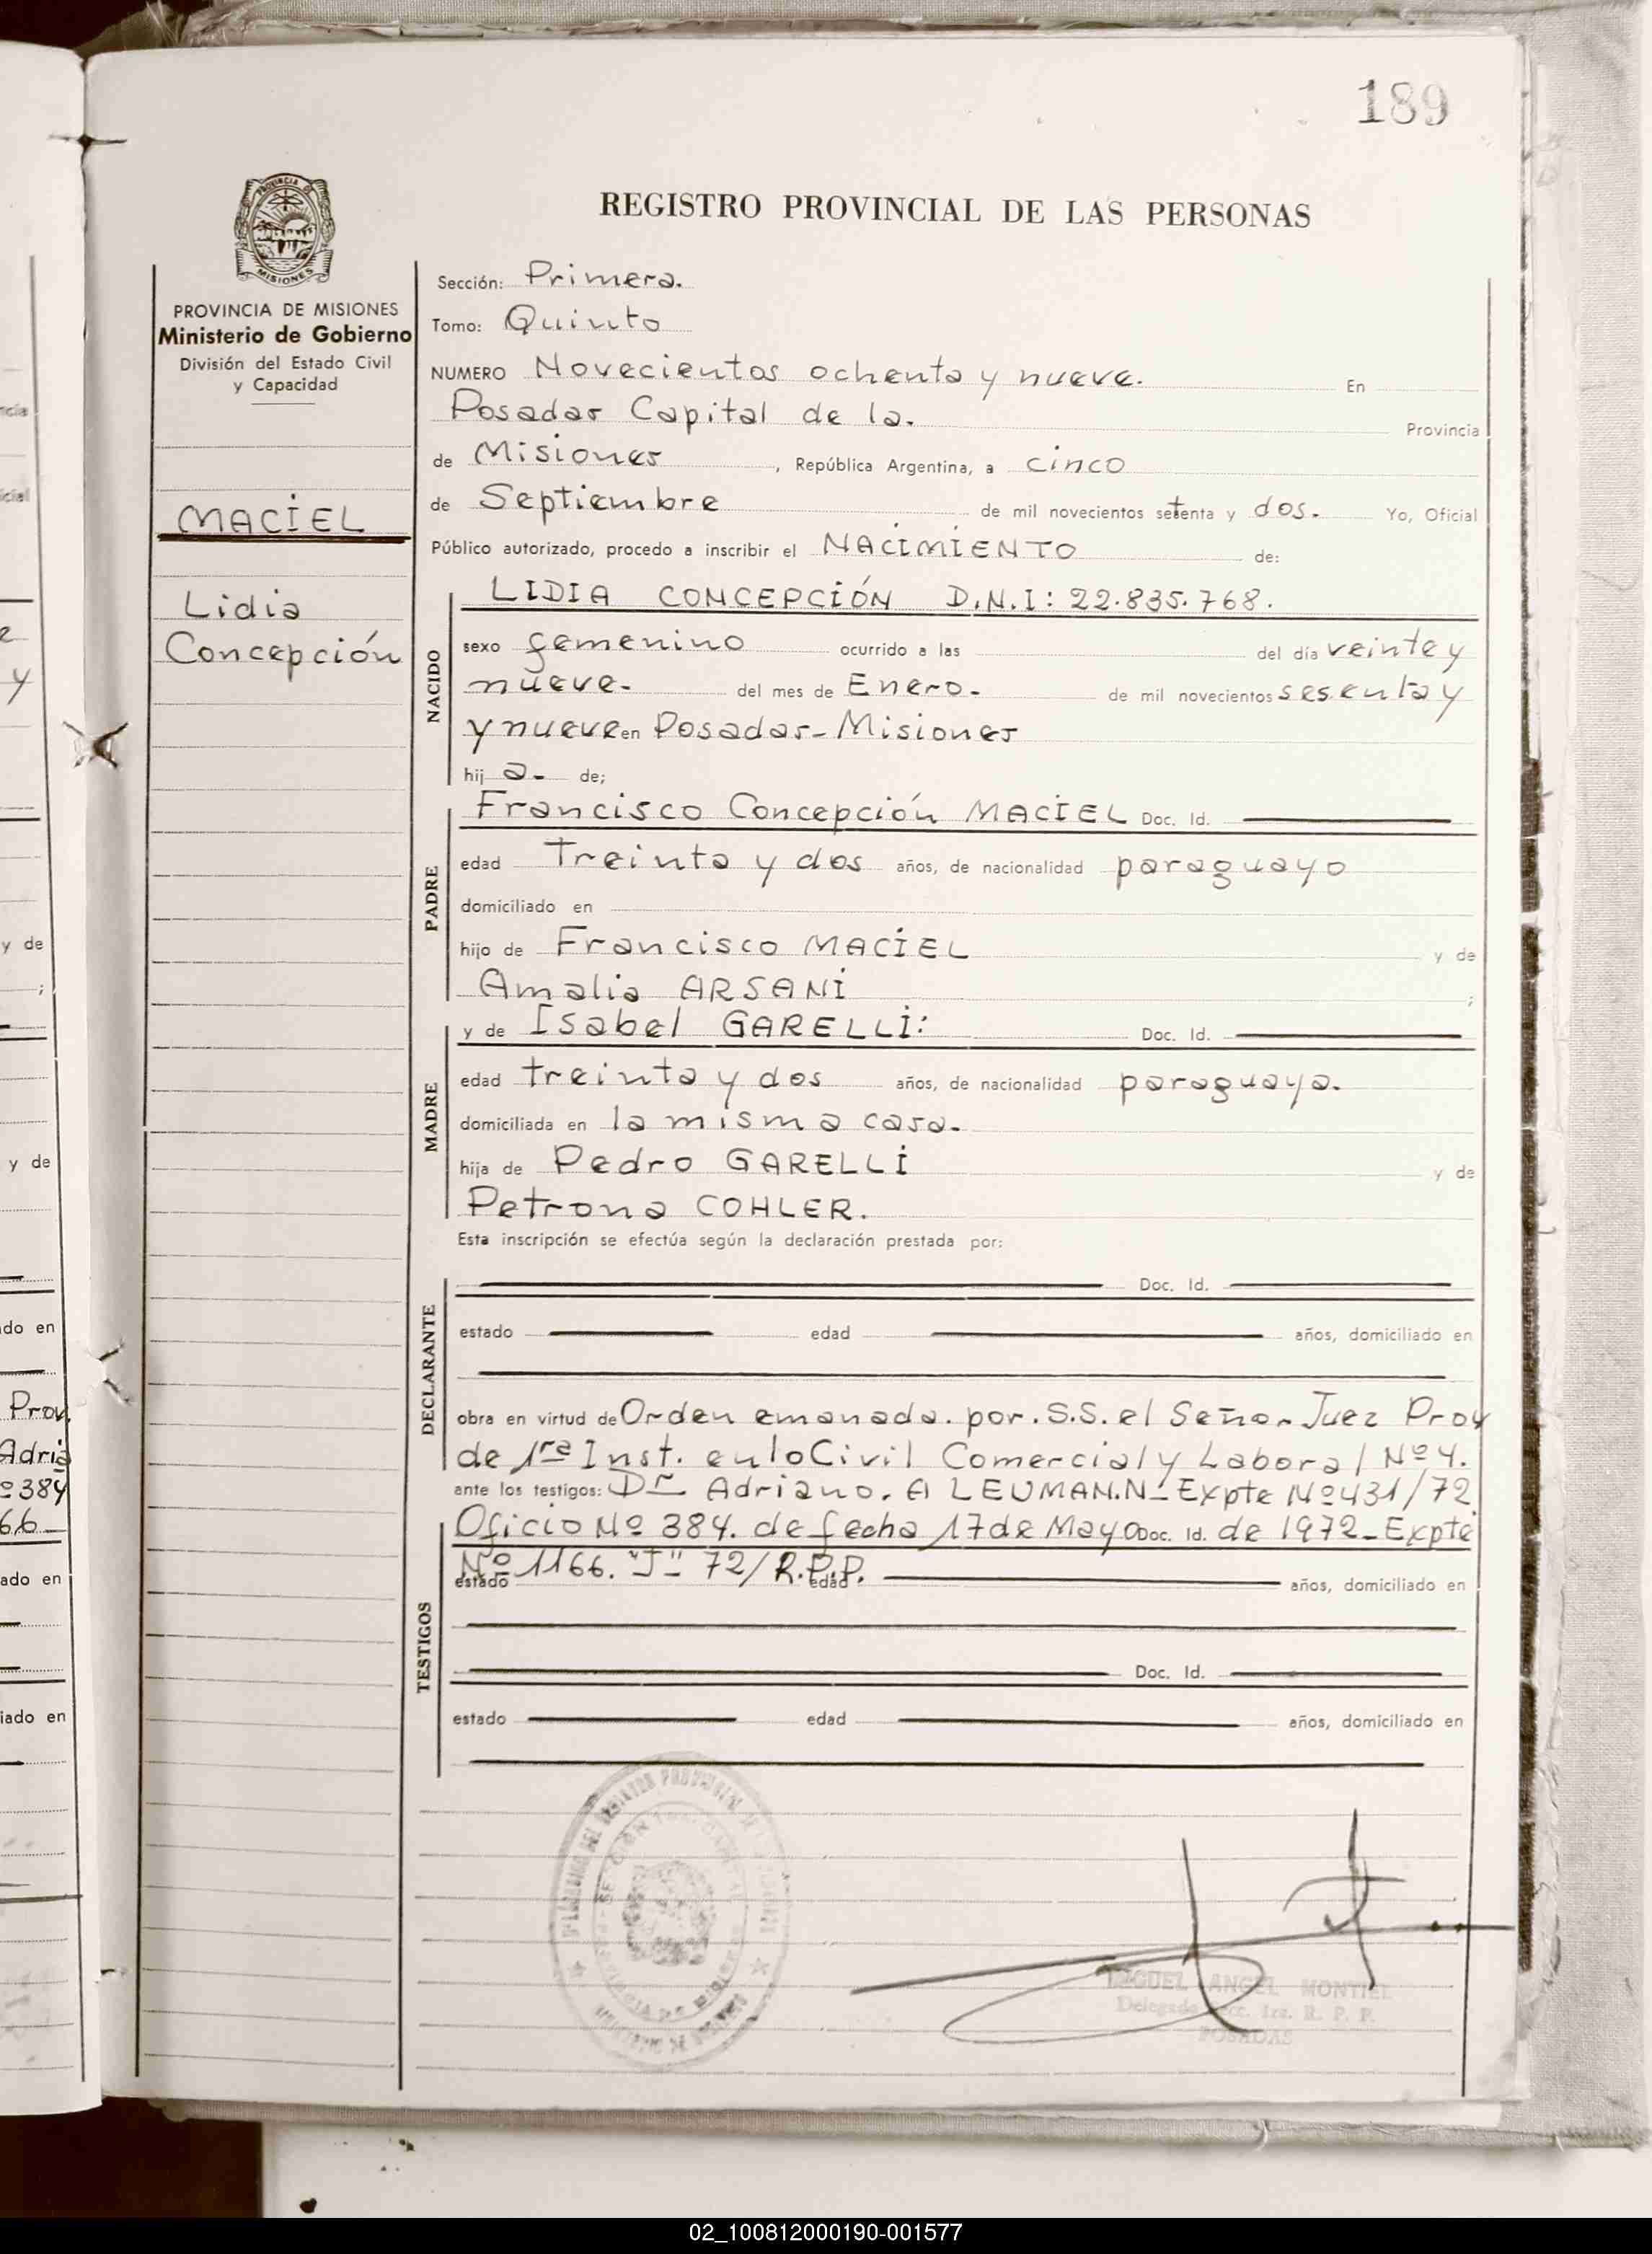 189
PROVINCIA DE
MISIONES
REGISTRO PROVINCIAL DE LAS PERSONAS
PROVINCIA DE MISIONES
Ministerio de Gobierno
División del Estado Civil
y Capacidad
MACIEL
Lidia
Concepción
Sección: Primera.
Tomo: Quinto
NUMERO Novecientos ochenta y nueve. En
Posadas Capital de la. Provincia
de Misiones, República Argentina, a cinco
de Septiembre de mil novecientos setenta y dos. Yo, Oficial
Público autorizado, procedo a inscribir el NACIMIENTO de:
NACIDO
LIDIA CONCEPCIÓN D.N.I: 22.835.768.
sexo femenino ocurrido a las del día veinte y
nueve. del mes de Enero. de mil novecientos sesenta y
y nueve en Posadas-Misiones
hij a. de;
PADRE
Francisco Concepción MACIEL Doc. Id.
edad Treinta y dos años, de nacionalidad paraguayo
domiciliado en
hijo de Francisco MACIEL y de
Amalia ARSANI ;
MADRE
y de Isabel GARELLI: Doc. Id.
edad treinta y dos años, de nacionalidad paraguaya.
domiciliada en la misma casa.
hija de Pedro GARELLI y de
Petrona COHLER.
Esta inscripción se efectúa según la declaración prestada por:
DECLARANTE
Doc. Id.
estado edad años, domiciliado en
obra en virtud de Orden emanada. por. S.S. el Señor Juez Prov
de 1ra Inst. en lo Civil Comercial y Laboral Nº 4.
ante los testigos: Dr Adriano. A LEUMAN.N- Expte Nº 431/72
Oficio Nº 384. de fecha 17 de Mayo Doc. Id. de 1972- Expte
Nº 1166. "J" 72/R.P.P.
estado edad años, domiciliado en
TESTIGOS
Doc. Id.
estado edad años, domiciliado en
MIGUEL ANGEL MONTIEL
Delegado Secc. 1ra. R. P. P.
POSADAS
ncia
icial
e
y
y de
;
y de
do en
Prov.
Adria
º 384
66
ado en
iado en
02_100812000190-001577